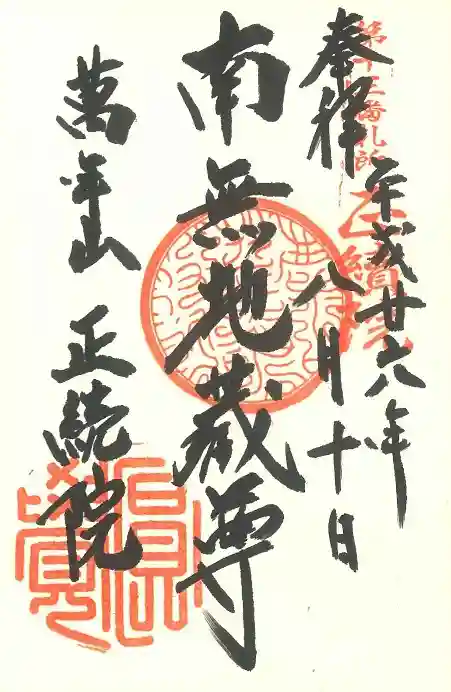 奉拝
第十三番札所
正續院
平成廿六年
八月十日
南無地蔵尊
萬年山 正続院